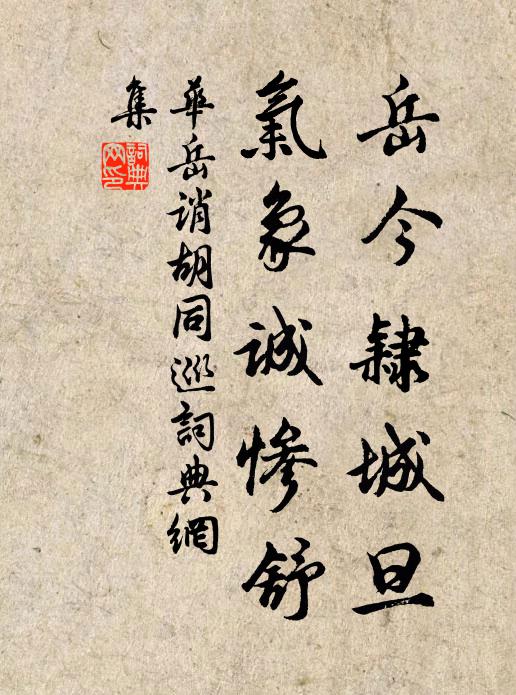 岳今隸城旦
氣象誠慘舒
華岳誚胡同巡詞典網
集
詞典
网印